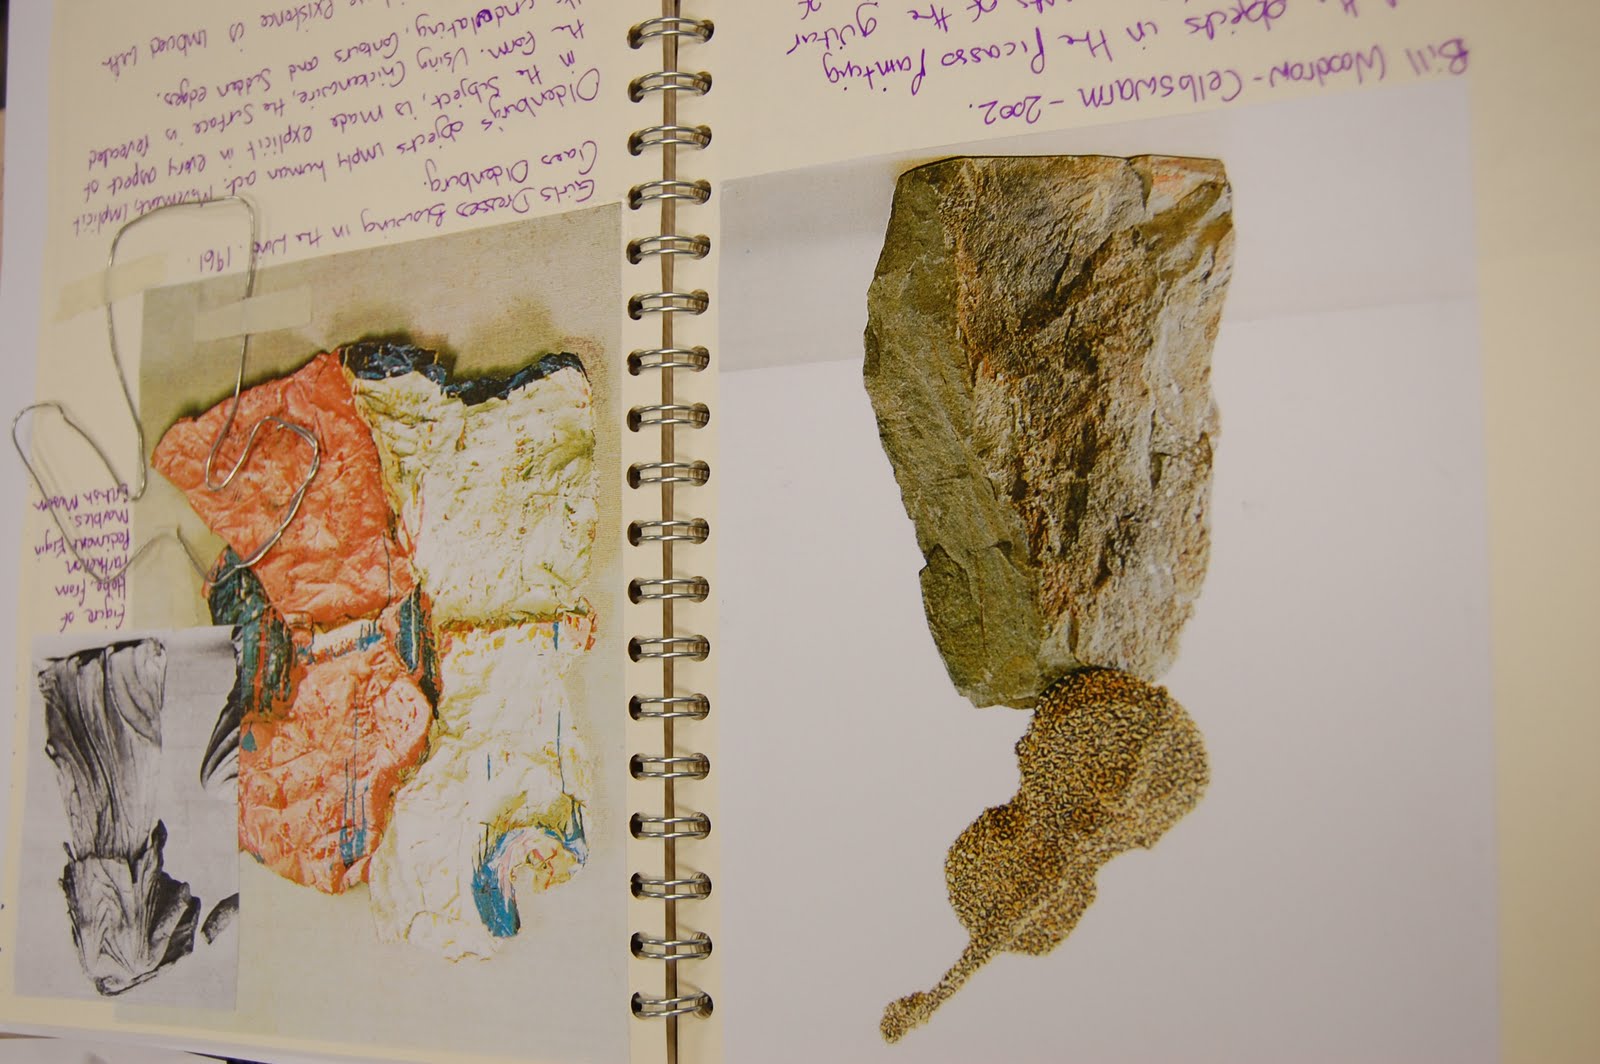 Bill Woodrow - Celloswarm - 2002.
the objects in the Picasso Painting
of the guitar
of
Figure of
Hebe, from
Parthenon
Pediment Elgin
Marbles,
British Museum
Girls Dresses Blowing in the Wind. 1961.
Claes Oldenburg.
Oldenburg's objects imply human act. Movement, implicit
in the subject, is made explicit in every aspect of
the form. Using Chickenwire, the surface is revealed
undulating, contours and sudden edges.
existence is imbued with